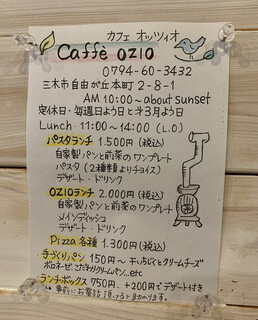 カフェ オッツィオ
Caffè OZIO
0794-60-3432
三木市自由が丘本町2-8-1
AM 10:00~about sunset
定休日・毎週日よう日と第3月よう日
Lunch 11:00~14:00 (L.O)
パスタランチ 1.500円(税込)
自家製パンと前菜のワンプレート
パスタ(2種類よりチョイス)
デザート・ドリンク
OZIOランチ 2.000円(税込)
自家製パンと前菜のワンプレート
メインディッシュ
デザート・ドリンク
Pizza各種 1.300円(税込)
手づくりパン 150円~ いちじくとクリームチーズ
ボロネーゼ、こだわりクリームパン...etc
ランチボックス 750円. +200円でデザート付き
事前にお電話頂けると助かります。